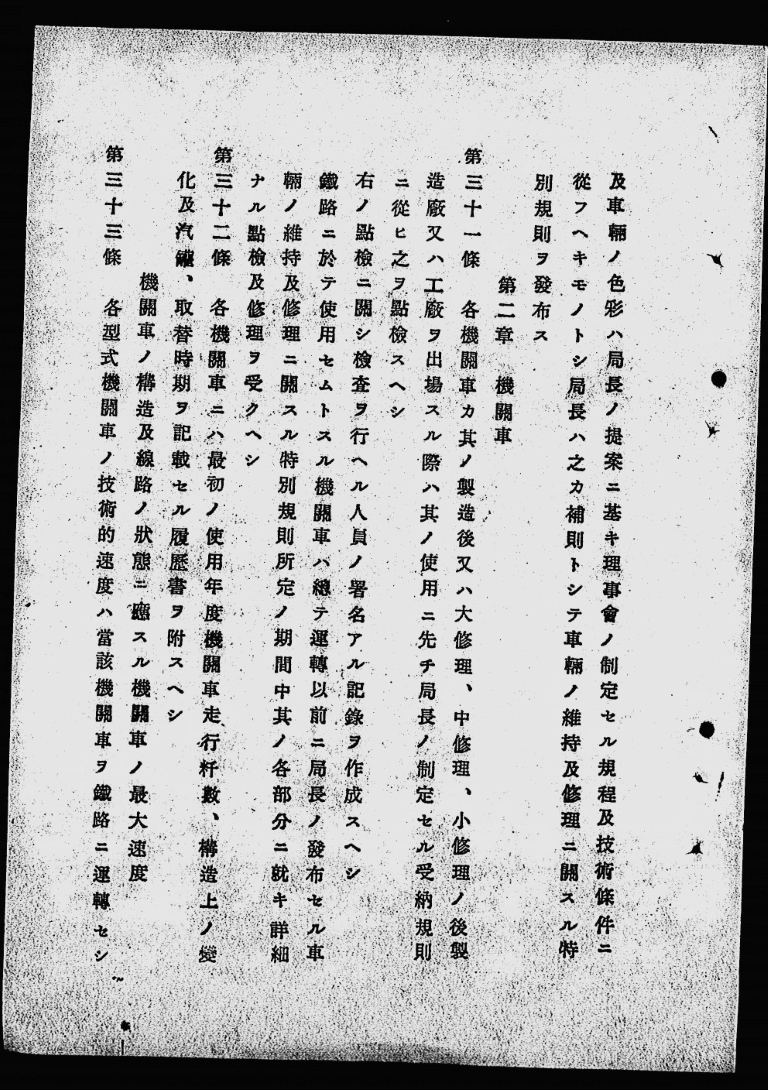 及車輛ノ色彩ハ局長ノ提案ニ基キ理事會ノ制定セル規程及技術條件ニ
從フヘキモノトシ局長ハ之カ補則トシテ車輛ノ維持及修理ニ關スル特
別規則ヲ發布ス
第二章　機關車
第三十一條　各機關車カ其ノ製造後又ハ大修理、中修理、小修理ノ後製
造廠又ハ工廠ヲ出場スル際ハ其ノ使用ニ先チ局長ノ制定セル受納規則
ニ從ヒ之ヲ點檢スヘシ
右ノ點檢ニ關シ檢査ヲ行ヘル人員ノ署名アル記錄ヲ作成スヘシ
鐵路ニ於テ使用セムトスル機關車ハ總テ運轉以前ニ局長ノ發布セル車
輛ノ維持及修理ニ關スル特別規則所定ノ期間中其ノ各部分ニ就キ詳細
ナル點檢及修理ヲ受クヘシ
第三十二條　各機關車ニハ最初ノ使用年度機關車走行粁數、構造上ノ變
化及汽罐、取替時期ヲ記載セル履歷書ヲ附スヘシ
機關車ノ構造及線路ノ狀態ニ應スル機關車ノ最大速度
第三十三條　各型式機關車ノ技術的速度ハ當該機關車ヲ鐵路ニ運轉セシ